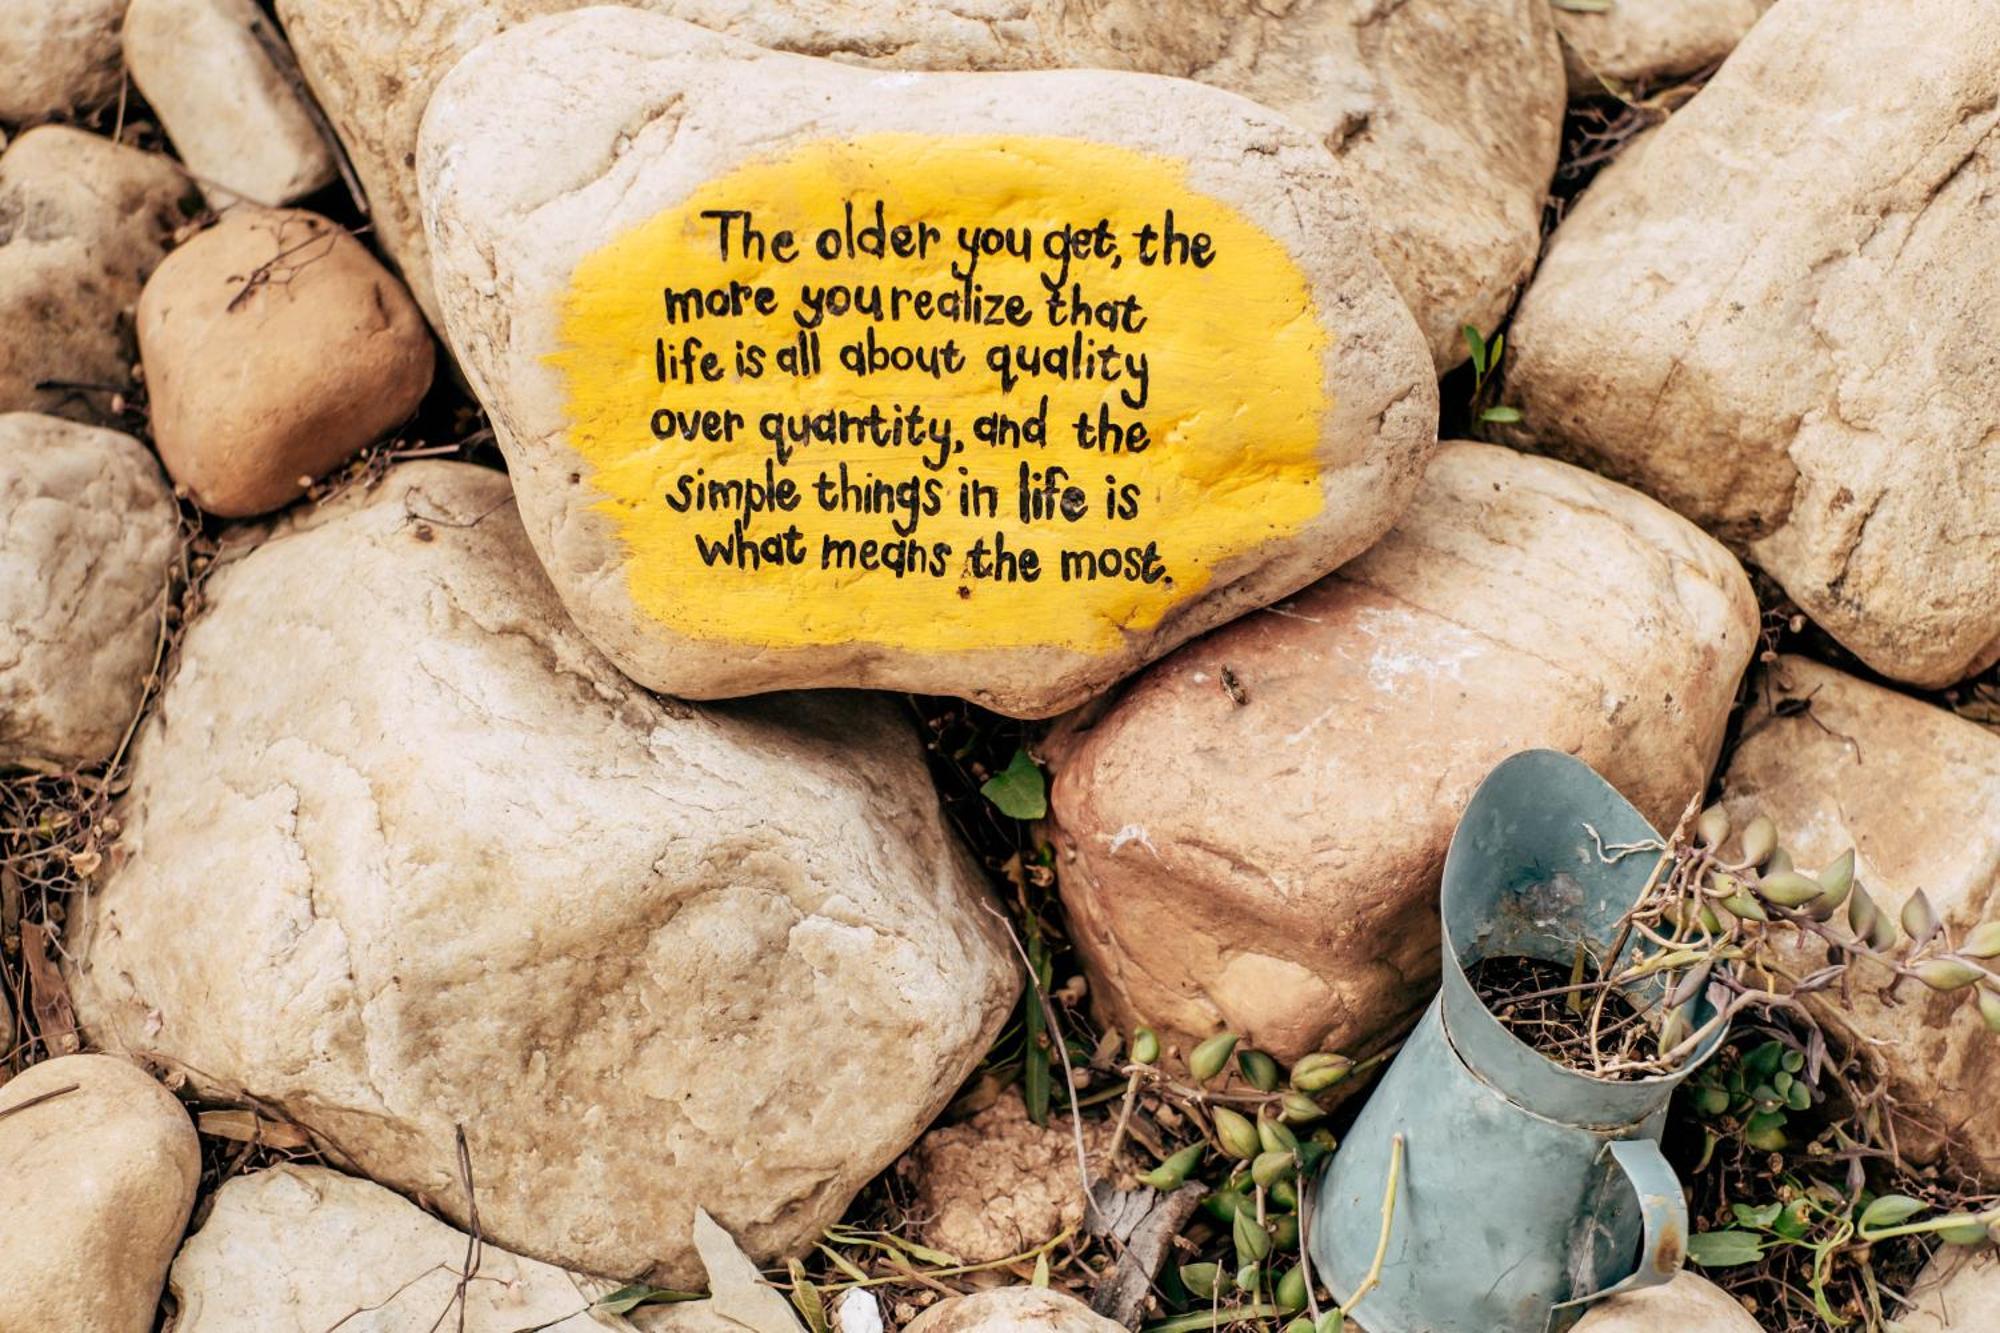 The older you get, the
more you realize that
life is all about quality
over quantity, and the
simple things in life is
what means the most.